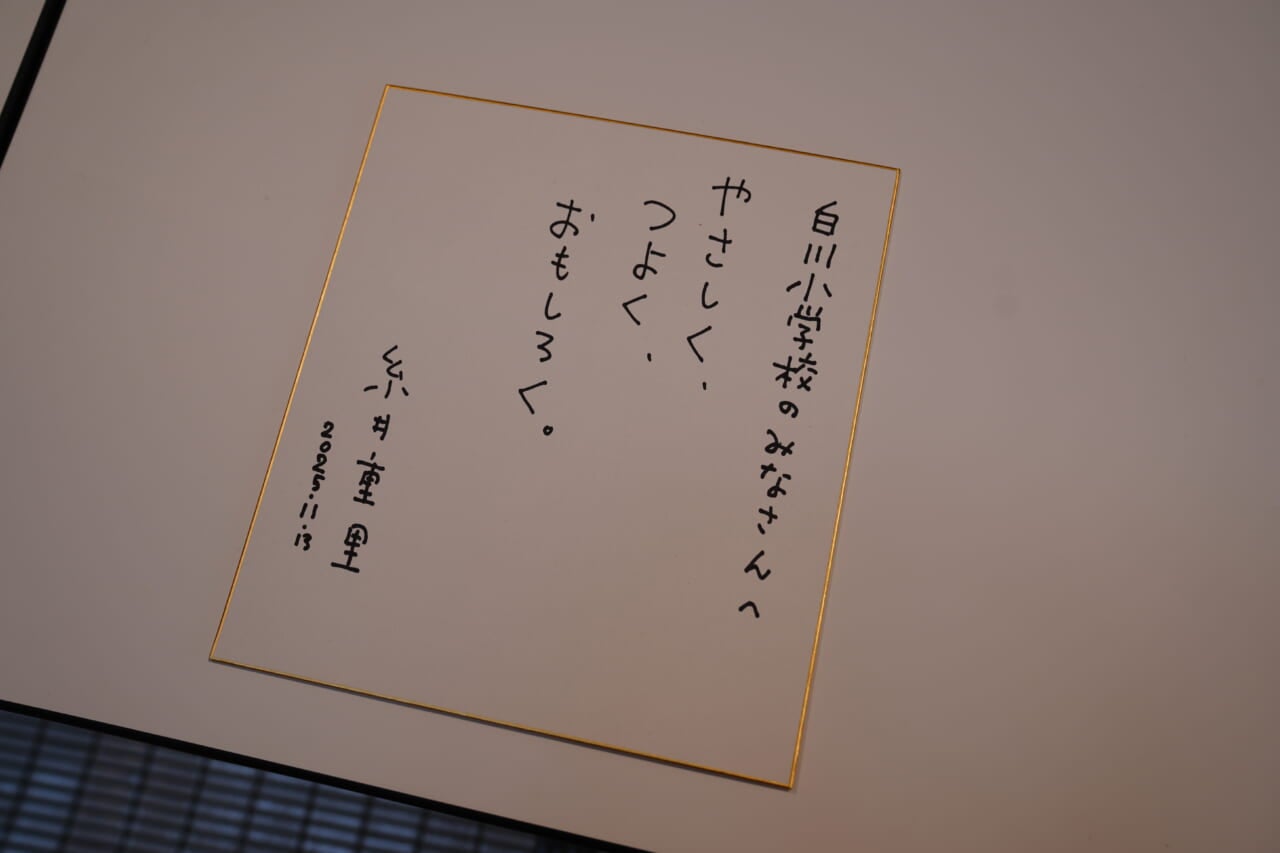 白川小学校のみなさんへ
やさしく、
つよく、
おもしろく。
糸井重里
2025.11.13